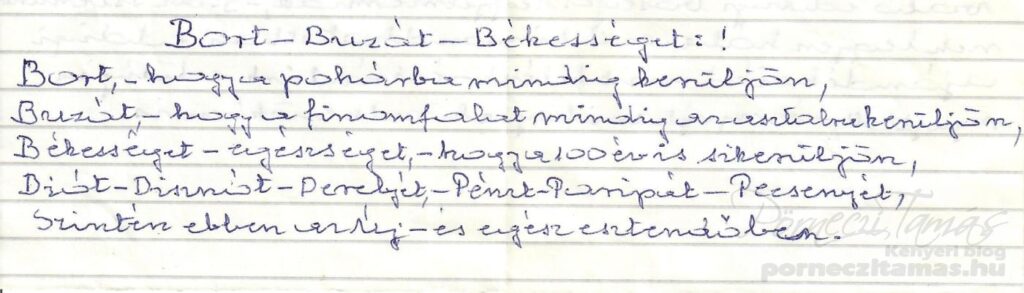 Bort – Buzát – Békességet: !
Bort, - hogy a pohárba mindig kerüljön,
Buzát, - hogy a finomfalat mindig az asztalra kerüljön,
Békességet - egészséget, - hogy a 100 év is sikerüljön,
Diót - Disznót - Derelyét, - Pénzt - Paripát - Pecsenyét,
Szintén ebben az Új - és egész esztendőben.
Pörneczi Tamás
Kenyeri blog
porneczitamas.hu